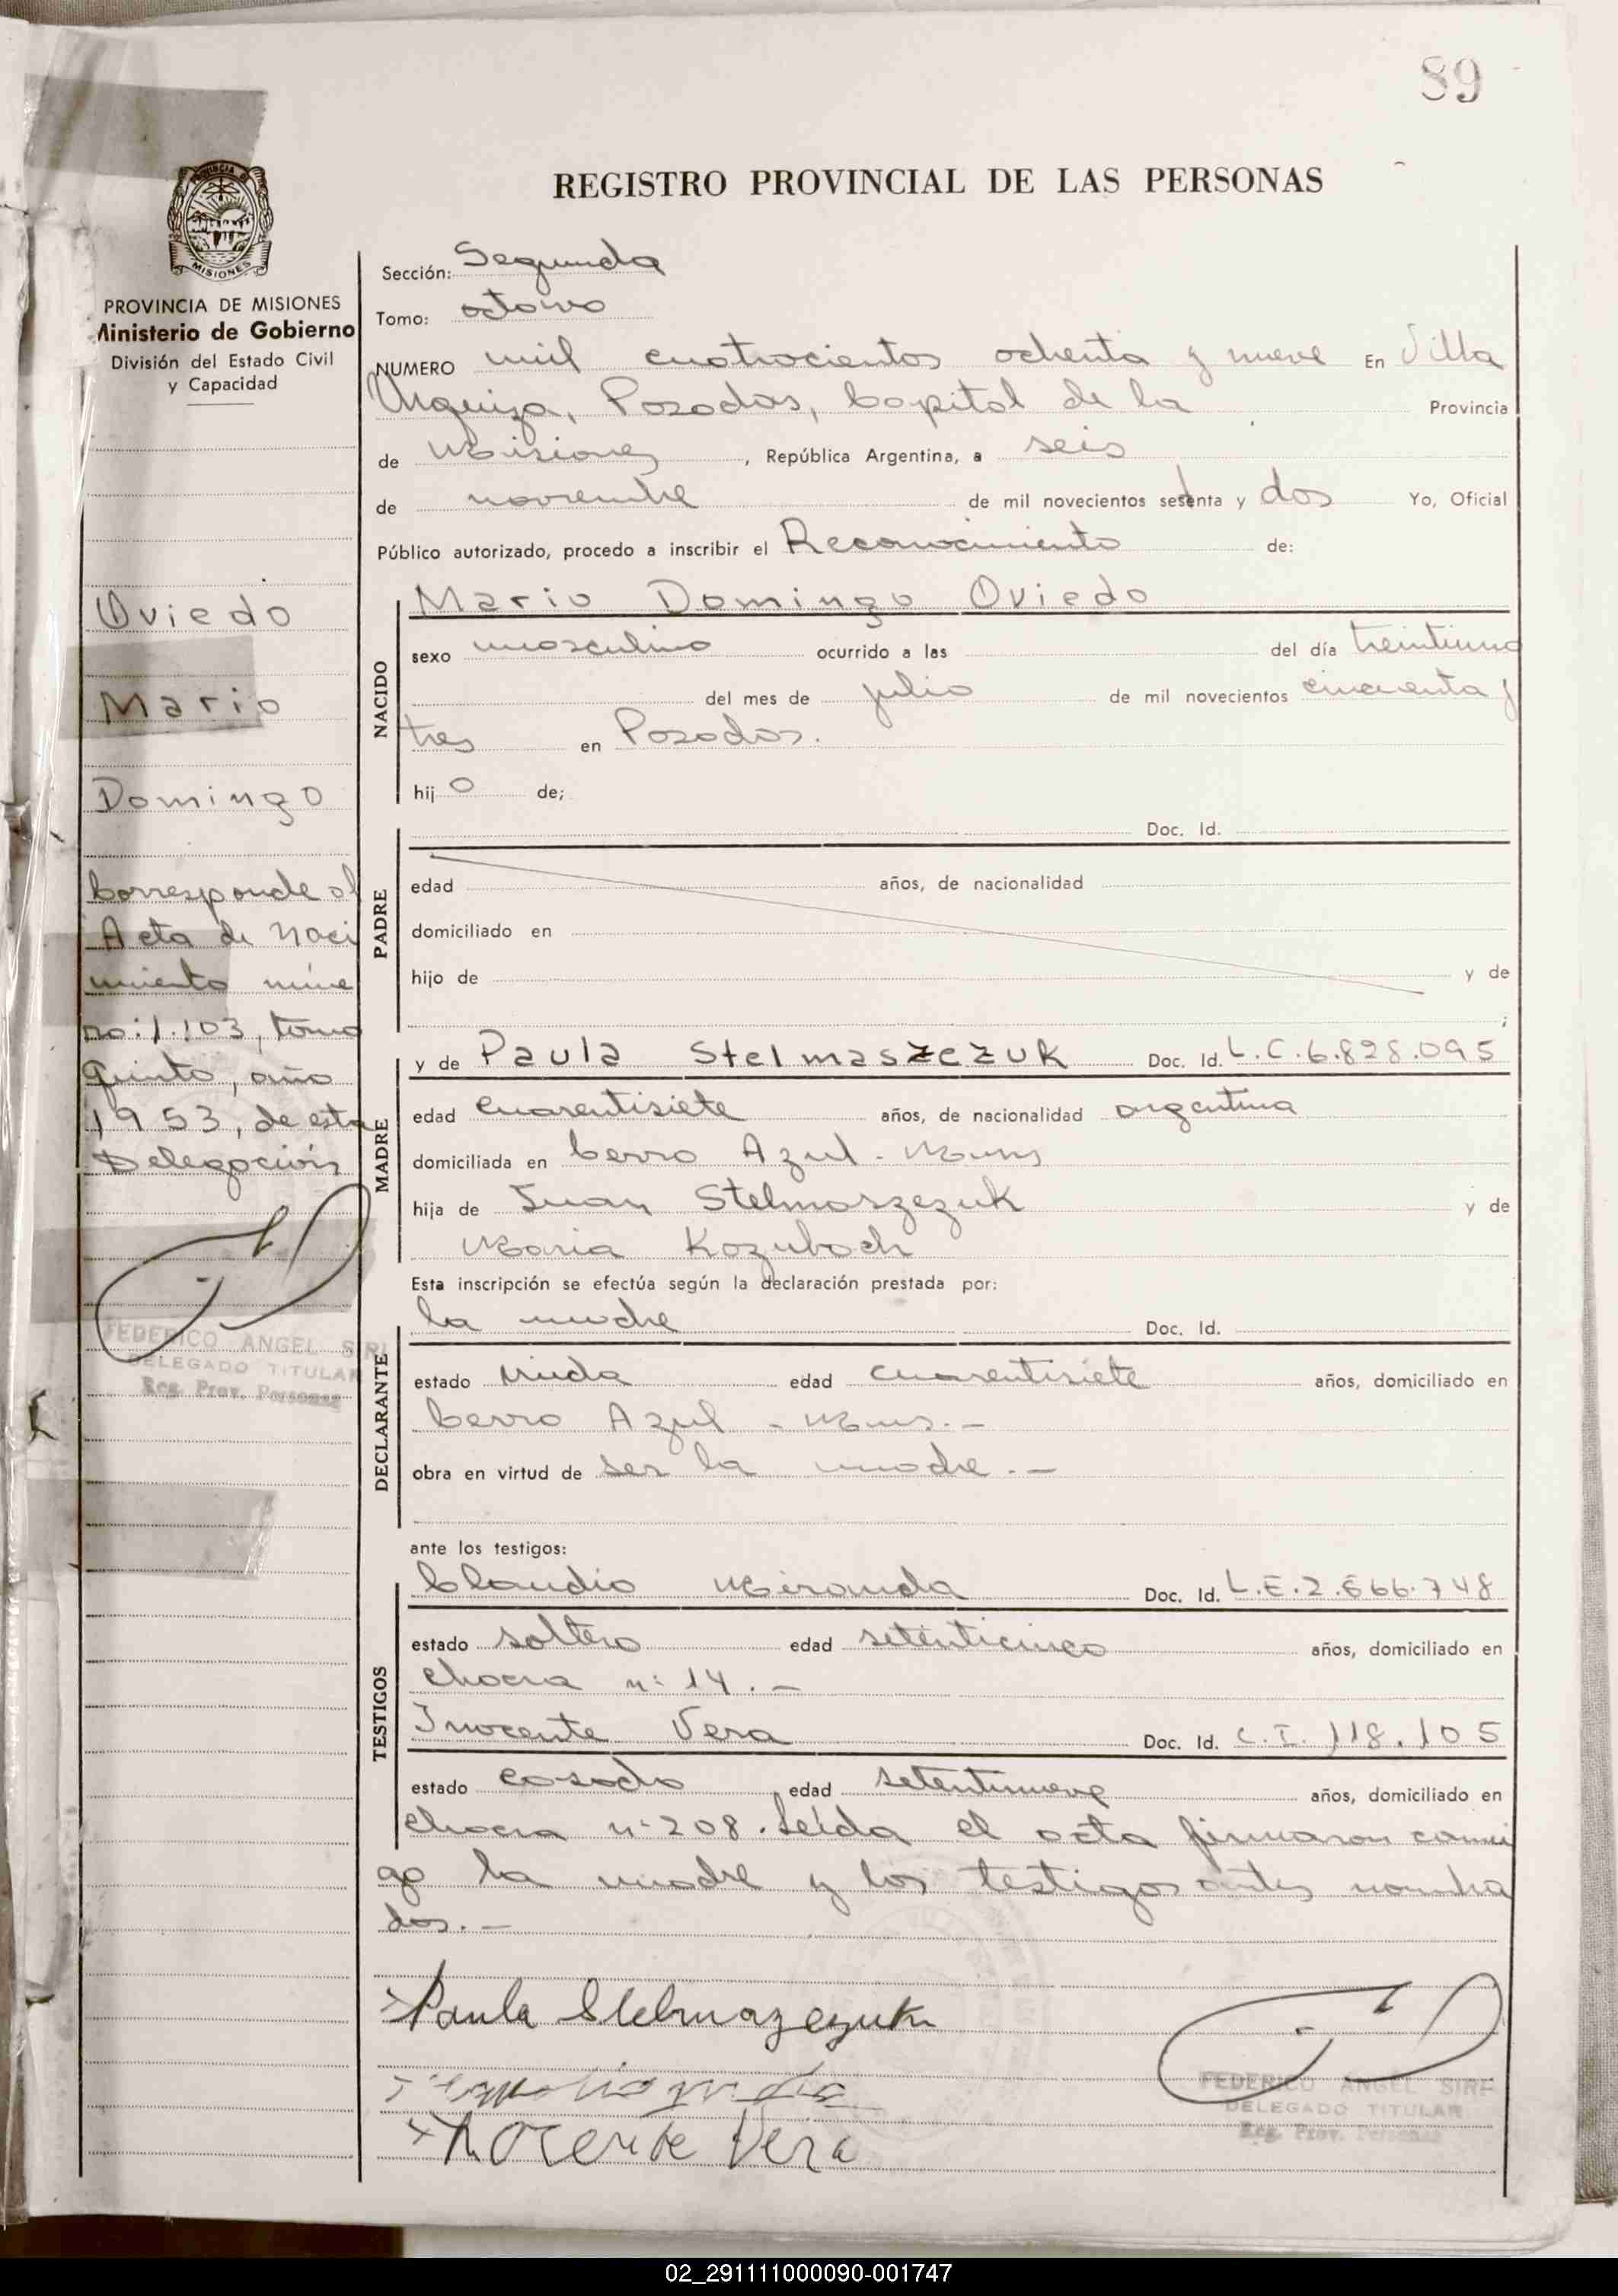 89
REGISTRO PROVINCIAL DE LAS PERSONAS
PROVINCIA DE MISIONES
Ministerio de Gobierno
División del Estado Civil
y Capacidad
Oviedo
Mario
Domingo
Corresponde al
Acta de Naci
miento núme
ro: 1.103, tomo
quinto, año
1953, de esta
Delegación
FEDERICO ANGEL SIRI
DELEGADO TITULAR
Reg. Prov. Personas
Sección: Segunda
Tomo: octavo
NUMERO mil cuatrocientos ochenta y nueve En Villa
Urquiza, Posadas, Capital de la Provincia
de Misiones, República Argentina, a seis
de noviembre de mil novecientos sesenta y dos Yo, Oficial
Público autorizado, procedo a inscribir el Reconocimiento de:
NACIDO
Mario Domingo Oviedo
sexo masculino ocurrido a las del día treintiuno
del mes de julio de mil novecientos cincuenta y
tres en Posadas.
hijo de;
PADRE
Doc. Id.
edad años, de nacionalidad
domiciliado en
hijo de y de
;
MADRE
y de Paula Stelmaszczuk Doc. Id. L.C. 6.828.095
edad cuarentisiete años, de nacionalidad argentina
domiciliada en Cerro Azul - Mnes
hija de Juan Stelmaszezuk y de
Maria Kozubach
Esta inscripción se efectúa según la declaración prestada por:
DECLARANTE
la madre Doc. Id.
estado viuda edad cuarentisiete años, domiciliado en
Cerro Azul - Mnes. -
obra en virtud de ser la madre. -
ante los testigos:
TESTIGOS
Claudio Miranda Doc. Id. L.E. 2.666.748
estado soltero edad setenticinco años, domiciliado en
chacra n: 14. -
Inocente Vera Doc. Id. C.I. 118.105
estado casado edad setentinueve años, domiciliado en
chacra n: 208. Leída el acta firmaron conmi
go la madre y los testigos antes nombra
dos. -
Paula Stelmazezuk
Inocente Vera
FEDERICO ANGEL SIRI
DELEGADO TITULAR
Reg. Prov. Personas
02_291111000090-001747